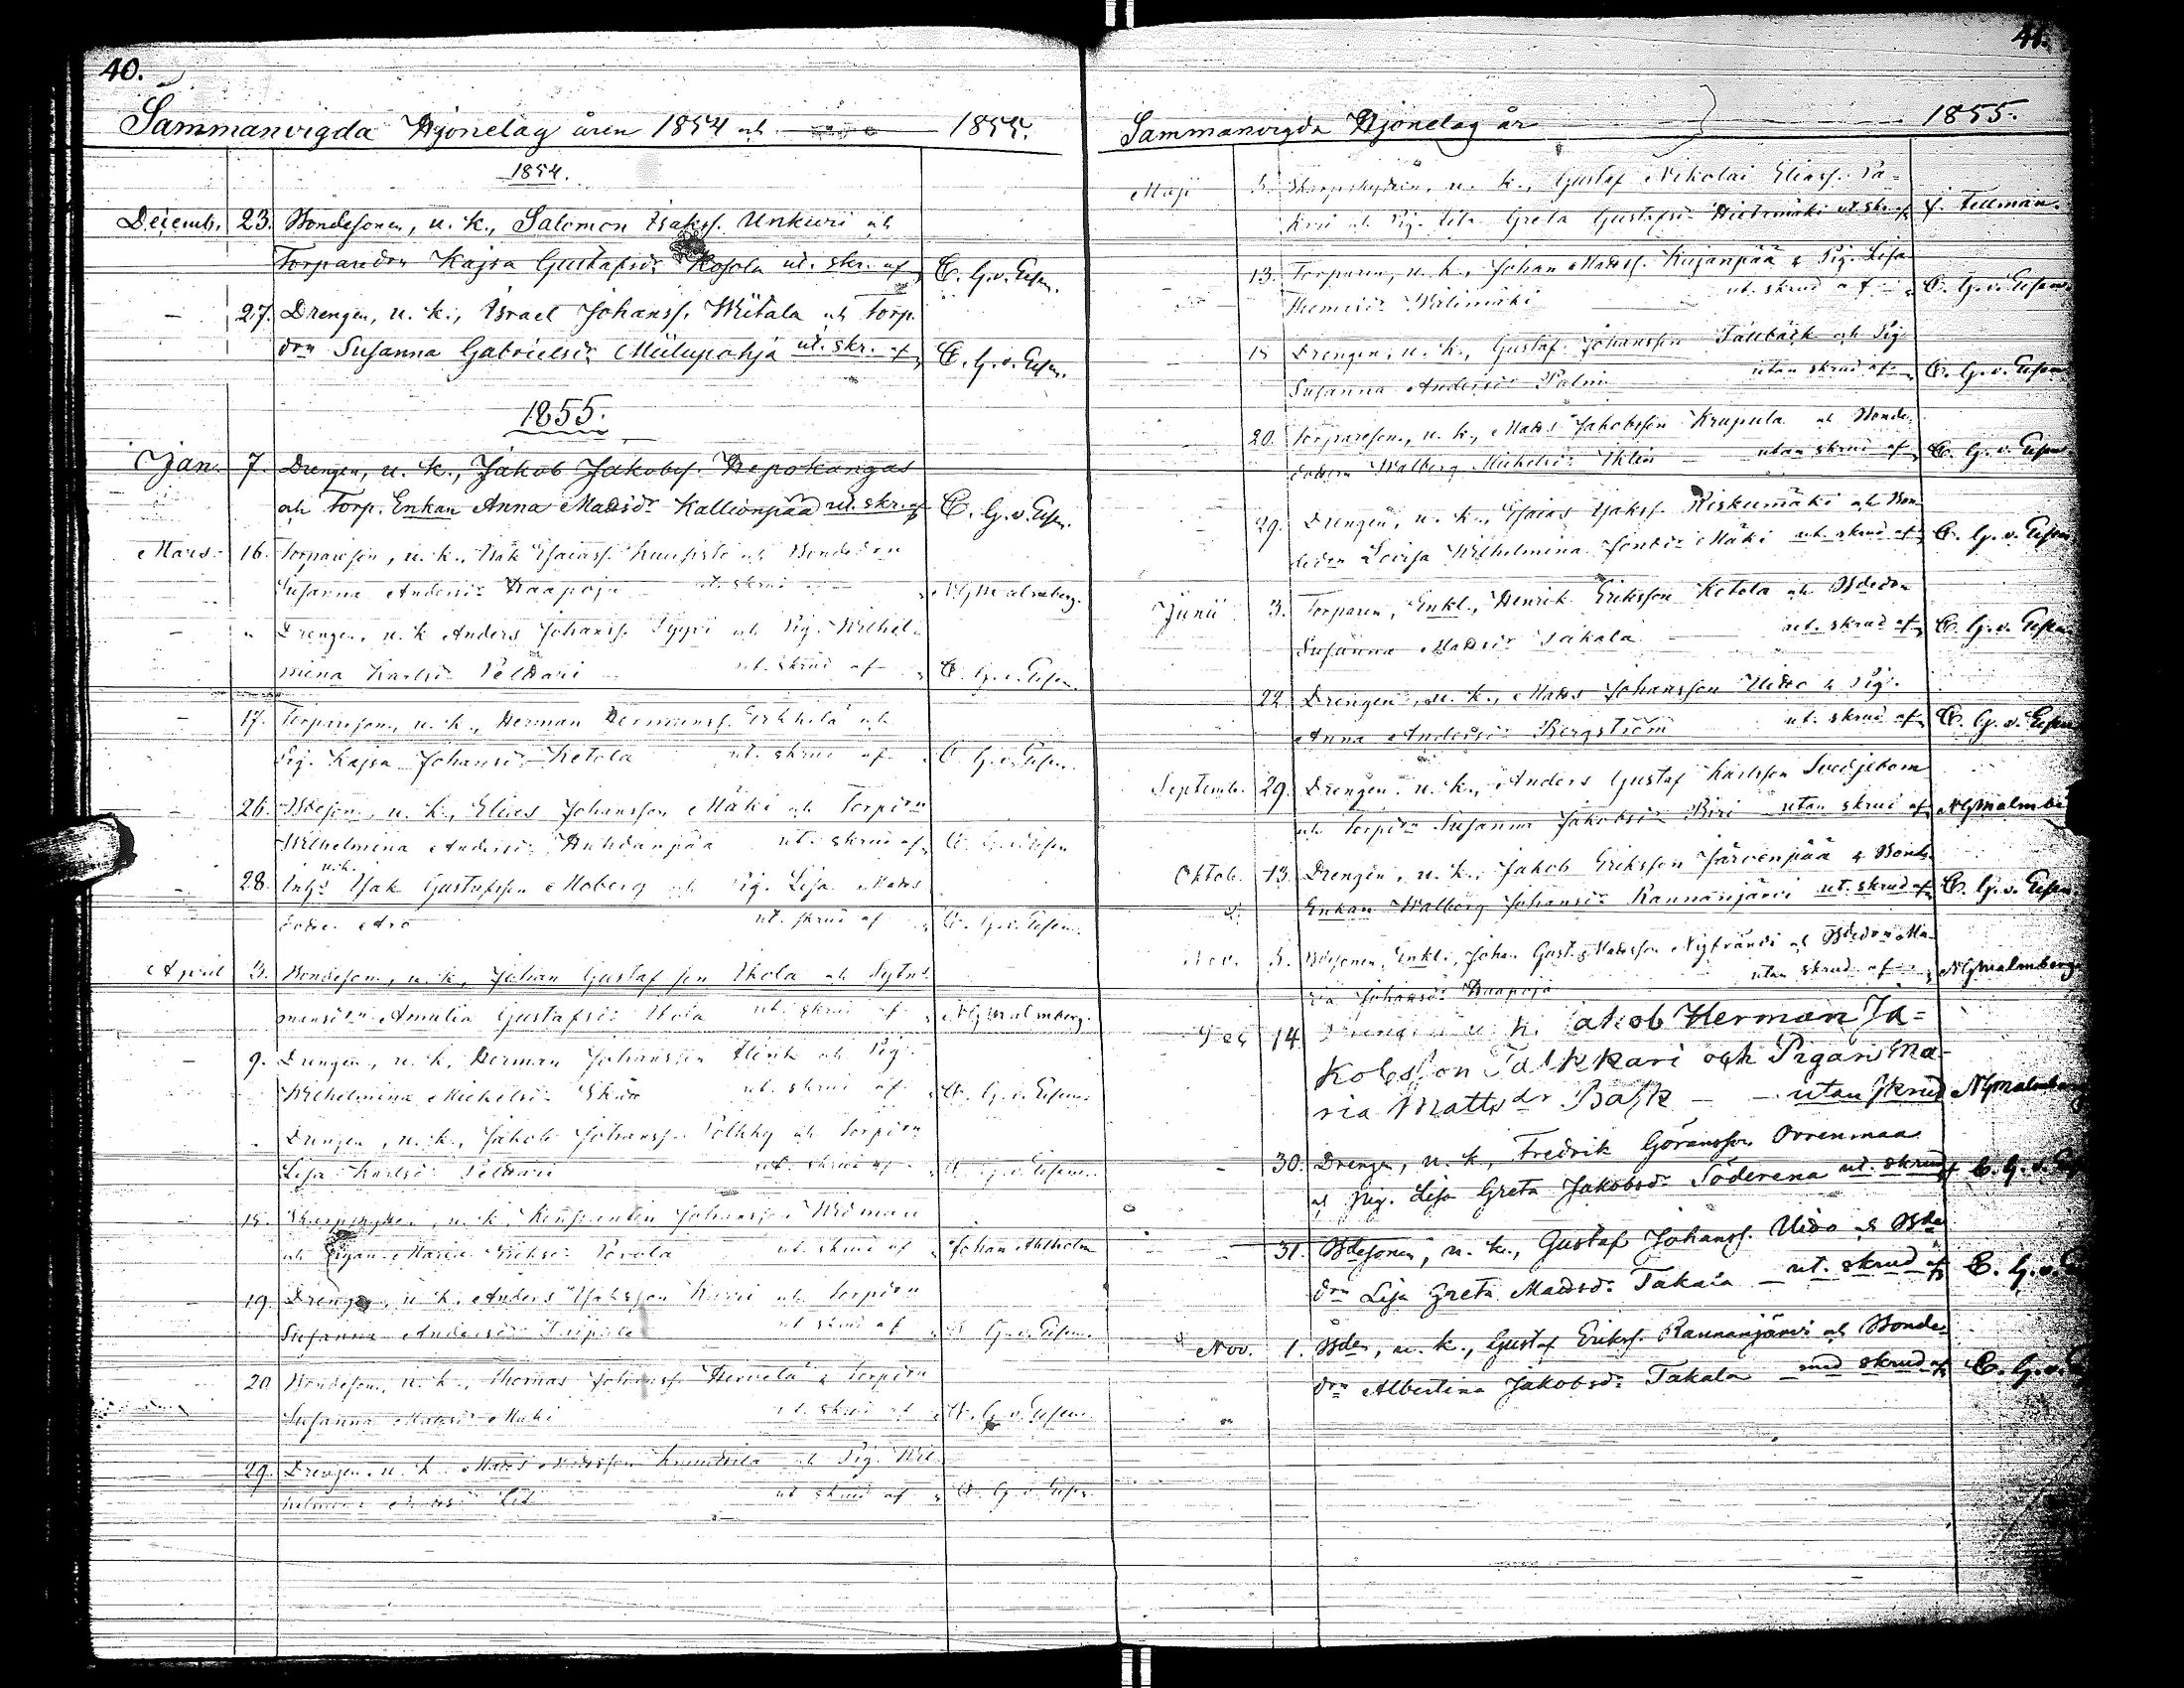 40.
Sammanvigda Hjonelag åren 1854 och 1855.
1854.
Decemb. 23. Bondesonen, u. k., Salomon Isakss. Unkuri och
Torparedrn Kajsa Gustafsdr Kosola ut. skr. af C. G. v. Essen.
- 27. Drengen, u. k., Israel Johanss. Wiitala och Torp.
drn Susanna Gabrielsdr Miilupohja ut. skr. af C. G. v. Essen.
1855.
Jan. 7. Drengen, u. k., Jakob Jakobss. Hepokangas
och Torp. Enkan Anna Madsdr Kallionpää ut. skr. af C. G. v. Essen.
Mars 16. Torpareson, u. k., Isak Esaiass. och Bondedrn
Susanna Andersdr Haapoja ut. skrud N G Malmberg.
- " Drengen, u. k. Anders Johanss. Pyyri och Pig. Wilhel-
mina Karlsdr Peldari ut. skrud af C. G. v. Essen.
- 17. Torpareson, u. k., Herman Hermanss. Erkkilä och
Pig. Kajsa Johansdr Ketola ut. skrud af C. G. v. Essen.
- 26. Bdeson, u. k., Elias Johansson Mäki och Torpdrn
Wilhelmina Andersdr Huhdanpää ut. skrud af C. G. v. Essen
u. k.
- 28. Isak Gustafsson Moberg och Pig. Lisa Mads
dotter Aro ut. skrud af C. G. v. Essen.
April 3. Bondeson, u. k., Johan Gustafsson Ikola och
Amalia Gustafsdr Ikola ut. skrud af N G Malmberg.
- 9. Drengen, u. k. Herman Johansson Flink och Pig.
Wilhelmina Michelsdr ut. skrud af C. G. v. Essen.
" Drengen, u. k., Jakob Johanss. Pölkky och Torpdrn
Lisa Karlsdr Peldari ut. skrud af C. G. v. Essen.
- 15. Skarpskytten, u. k. Johansson Widman
och Pigan Maria Eriksdr ut. skrud af Johan Ahlholm
- 19. Drengen, u. k. Anders Isaksson och Torpdrn
Susanna Andersdr ut. skrud af C. G. v. Essen.
20 Bondeson, u. k., Thomas Johanss. Hirvelä & Torpdrn
Susanna Madsdr Mäki ut. skrud af C. G. v. Essen.
29. Drengen, u. k. Mads Madsson och Pig. Wil
helmina ut. skrud af C. G. v. Essen.
41.
Sammanvigda Hjonelag år 1855.
Maji 5. Skarpskytten, u. k., Gustaf Nikolai Eliass. Pa-
och Pig. Greta Gustafsdr Hietamäki ut. skr. af J. Fellman.
- 13. Torparen, u. k., Johan Madss. Kujanpää & Pig. Lisa
Thomisdr Wälimäki ut. skrud af C. G. v. Essen
15 Drengen, u. k., Gustaf Johansson Tallbäck och Pig
Susanna Andersdr Palm utan skrud af C. G. v. Essen
20. Torpareson, u. k., Mads Jakobsson Krapula och Bonde-
dottern Walborg Michelsdr Yklin utan skrud af C. G. v. Essen
29. Drengen, u. k., Esaias Isakss. Riskumäki och Bon-
dedrn Lovisa Wilhelmina Mäki ut. skrud af C. G. v. Essen
Junii 3. Torparen, Enkl., Henrik Eriksson Ketola och Bdedrn
Susanna Madsdr Takala ut. skrud af C. G. v. Essen
22 Drengen, u. k., Mads Johansson Uitto & Pig.
Anna Andersdr Bergström ut. skrud af C. G. v. Essen
Septemb. 29. Drengen, u. k., Anders Gustaf Karlsson
och Torpdrn Susanna Jakobsdr Biri utan skrud af N G Malmb
Oktob. 13. Drengen, u. k., Jakob Eriksson Järvenpää & Bonde
Enkan Walborg Johansdr Rannanjärvi ut. skrud af C. G. v. Essen
Nov. 5. Bdesonen, Enkl., Johan Gust. Madsson Nybrandt och Bdedrn Ma-
ria Johansdr Haapoja utan skrud af N G Malmberg.
Dec 14. Drengen u. k. Jakob Herman Ja-
kobsson Talkkari och Pigan Ma-
ria Mattsdr Back - - utan skrud N G Malmberg
- 30. Drengen, u. k., Fredrik Göransson Orrenmaa
och Pig. Lisa Greta Jakobsdr Söderena ut. skrud af C. G. v.
- 31. Bdesonen, u. k., Gustaf Johanss. Uitto och Bde
drn Lisa Greta Madsdr Takala ut. skrud af C. G. v.
Nov. 1. Bden, u. k., Gustaf Erikss. Rannanjärvi och Bonde-
drn Albertina Jakobsdr Takala med skrud af C. G. v.